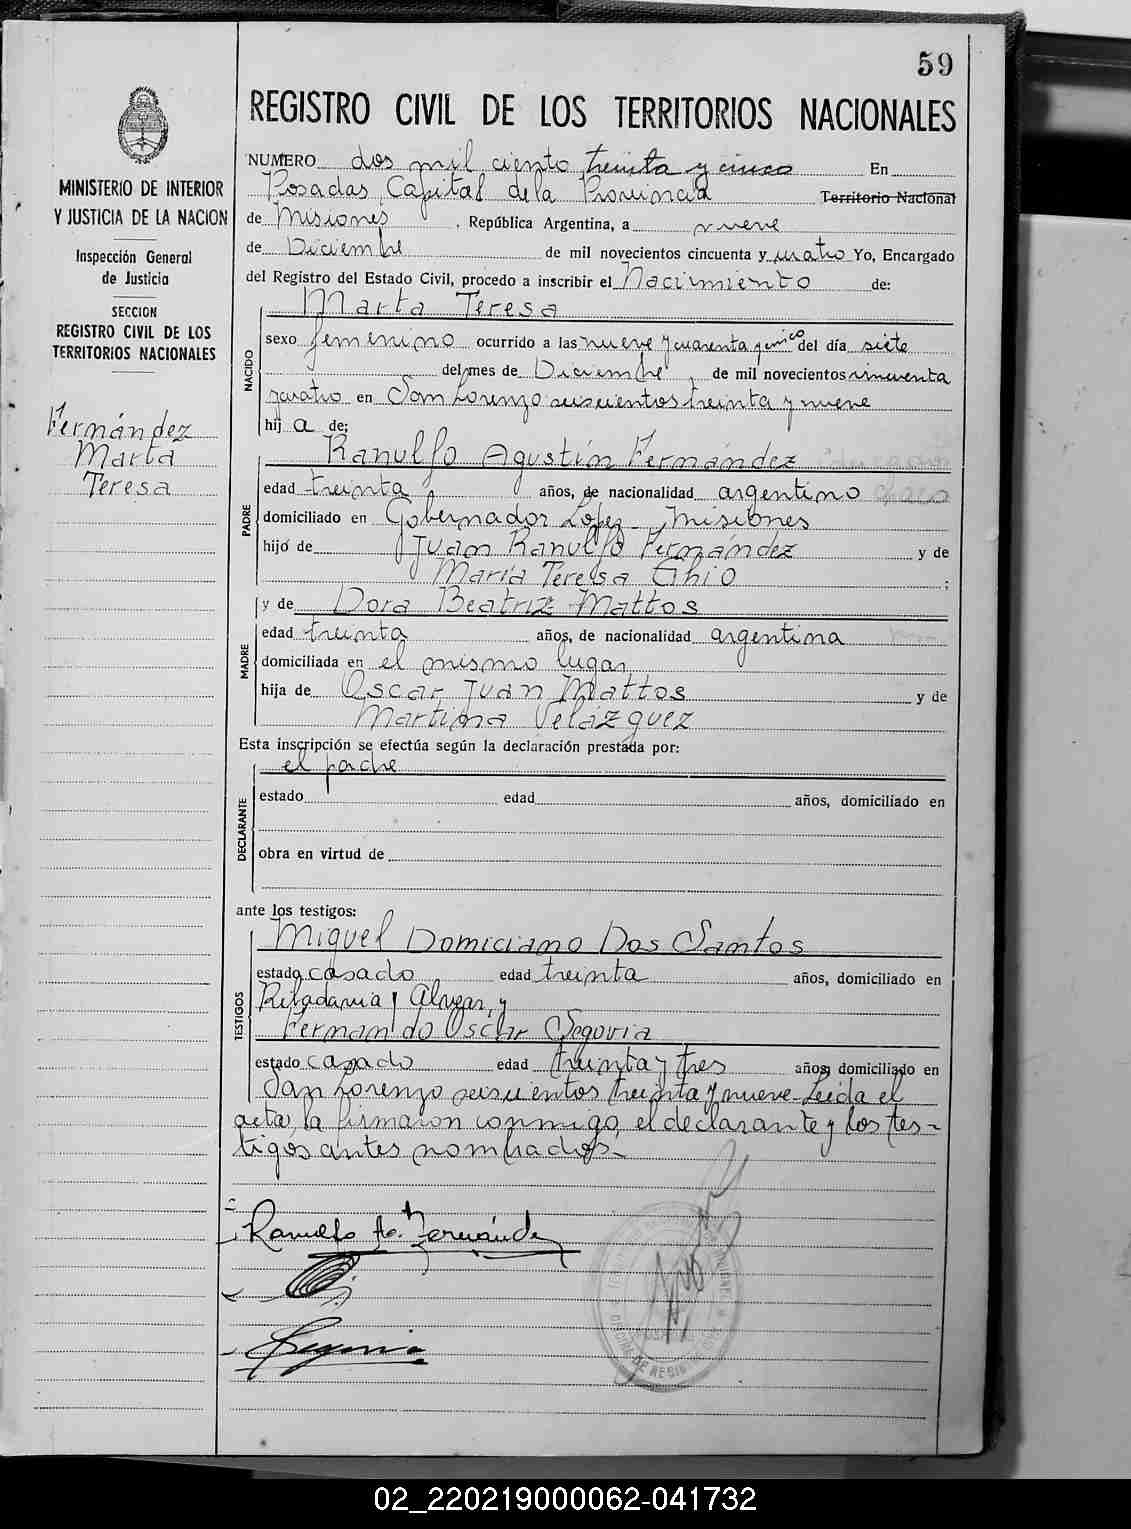 59
REGISTRO CIVIL DE LOS TERRITORIOS NACIONALES
MINISTERIO DE INTERIOR
Y JUSTICIA DE LA NACION
Inspección General
de Justicia
SECCION
REGISTRO CIVIL DE LOS
TERRITORIOS NACIONALES
Fernández
Marta
Teresa
NUMERO dos mil ciento treinta y cinco En
Posadas, Capital de la Provincia Territorio Nacional
de Misiones, República Argentina, a nueve
de Diciembre de mil novecientos cincuenta y cuatro Yo, Encargado
del Registro del Estado Civil, procedo a inscribir el Nacimiento de:
Marta Teresa
NACIDO
sexo femenino ocurrido a las nueve y cuarenta y cinco del día siete
del mes de Diciembre, de mil novecientos cincuenta
y cuatro en San Lorenzo seiscientos treinta y nueve
hija de;
PADRE
Ranulfo Agustín Fernández
edad treinta años, de nacionalidad argentino
domiciliado en Gobernador López - Misiones
hijo de Juan Ranulfo Fernández y de
María Teresa Ghio;
MADRE
y de Dora Beatriz Mattos
edad treinta años, de nacionalidad argentina
domiciliada en el mismo lugar
hija de Oscar Juan Mattos y de
Martina Velázquez
Esta inscripción se efectúa según la declaración prestada por:
DECLARANTE
el padre
estado edad años, domiciliado en
obra en virtud de
ante los testigos:
TESTIGOS
Miguel Domiciano Dos Santos
estado casado edad treinta años, domiciliado en
y
Fernando Oscar Segovia
estado casado edad treinta y tres años, domiciliado en
San Lorenzo seiscientos treinta y nueve - Leída el
acta, la firmaron conmigo, el declarante y los tes-
tigos antes nombrados.-
Ranulfo A. Fernández
Segovia
02_220219000062-041732